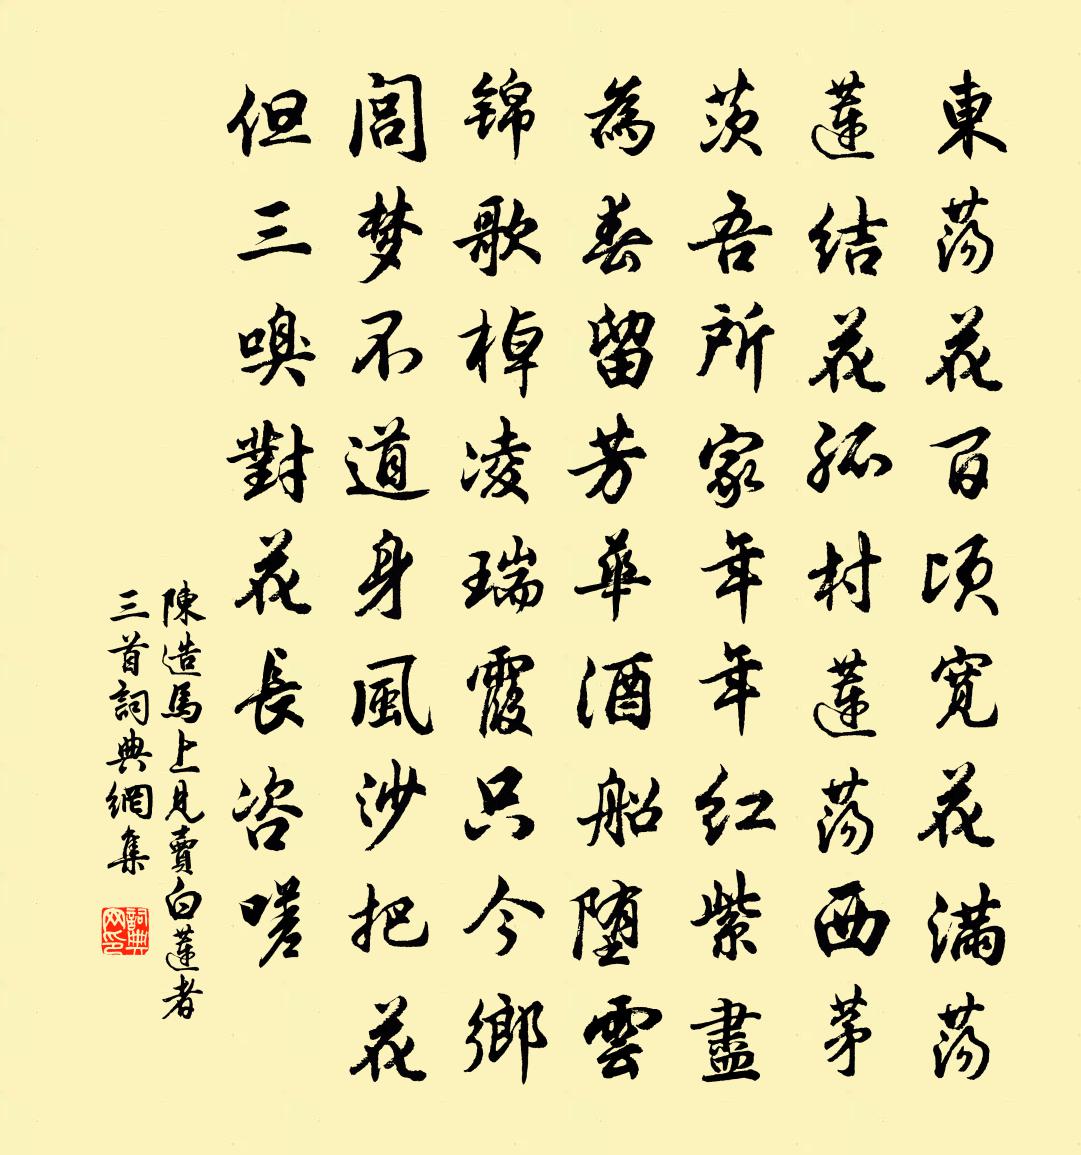 東蕩花百頃寬花滿蕩
蓮結花孤村蓮蕩西茅
茨吾所家年年紅紫盡
為春留芳華酒船堕雲
锦歌棹凌瑞霞只今鄉
閭梦不道身風沙把花
但三嗅對花長咨嗟
陳造馬上見賣白蓮者
三首詞典網集
詞典网印